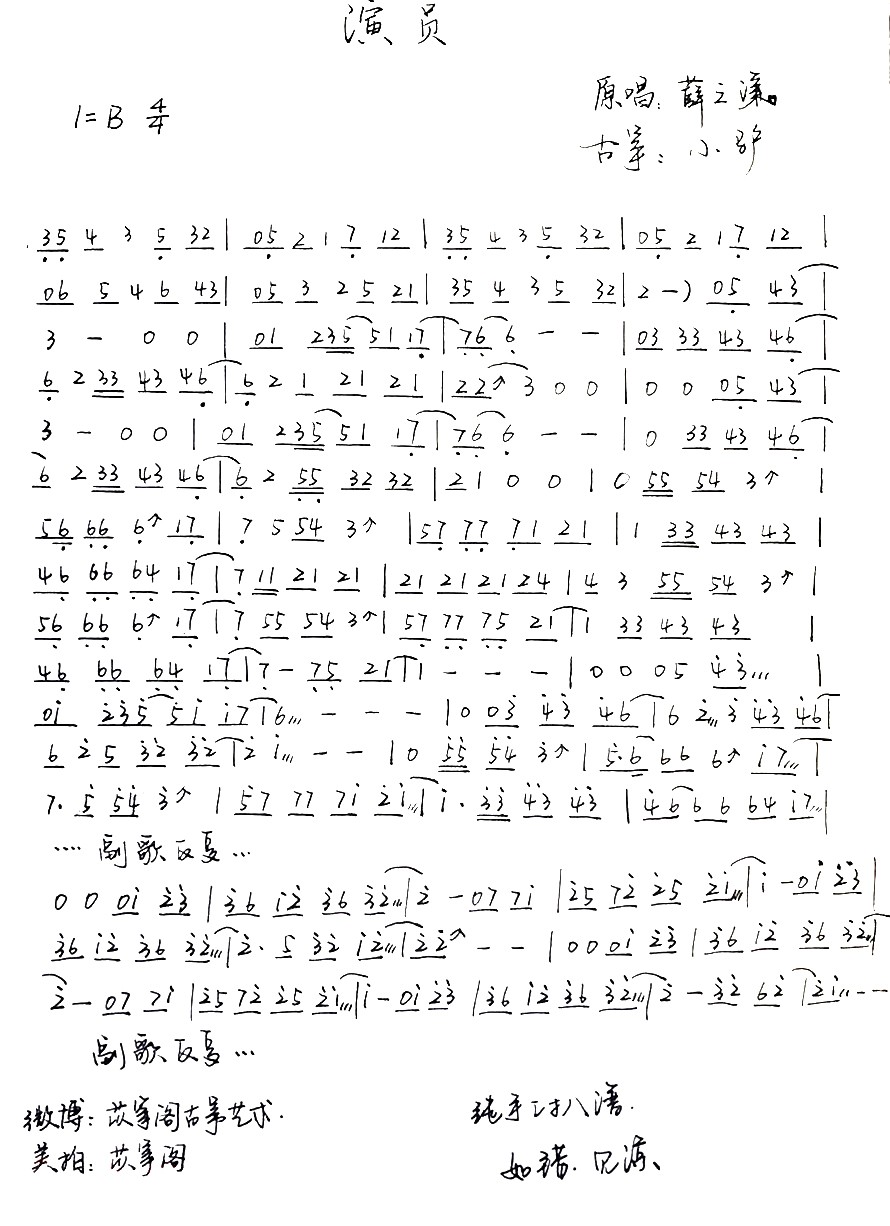 演员
原唱: 薛之谦。
1=B 4/4
古筝: 小驴
35 4 3 5 32 | 05 2 1 7 12 | 35 4 3 5 32 | 05 2 1 7 12 |
06 5 4 6 43 | 05 3 2 5 21 | 35 4 3 5 32 | 2 -) 05 43 |
3 - 0 0 | 01 235 51 17 | 76 6 - - | 03 33 43 46 |
6 2 33 43 46 | 6 2 1 21 21 | 22↗ 3 0 0 | 0 0 05 43 |
3 - 0 0 | 01 235 51 17 | 76 6 - - | 0 33 43 46 |
6 2 33 43 46 | 6 2 55 32 32 | 21 0 0 | 0 55 54 3↗ |
56 66 6↗ 17 | 7 5 54 3↗ | 57 77 71 21 | 1 33 43 43 |
46 66 64 17 | 7 11 21 21 | 21 21 21 24 | 4 3 55 54 3↗ |
56 66 6↗ 17 | 7 55 54 3↗ | 57 77 75 21 | 1 33 43 43 |
46 66 64 17 | 7 - 75 21 | 1 - - - | 0 0 05 43... |
01 235 51 17 | 6... - - - | 0 03 43 46 | 6 2... 3 43 46 |
6 2 5 32 32 | 2 1... - - | 0 55 54 3↗ | 5·6 66 6↗ 17... |
7· 5 54 3↗ | 57 77 71 21... | 1· 33 43 43 | 46 6 6 64 17... |
···· 副歌反复 ···
0 0 01 23 | 36 12 36 32... | 2 - 07 71 | 25 72 25 21... | 1 - 01 23 |
36 12 36 32... | 2· 5 32 12... | 22↗ - - | 0 0 01 23 | 36 12 36 32... |
2 - 07 71 | 25 72 25 21... | 1 - 01 23 | 36 12 36 32... | 2 - 32 62 | 21... - -
副歌反复 ···
微博: 苡筝阁古筝艺术.
纯手工扒谱.
美拍: 苡筝阁
如错. 见谅、